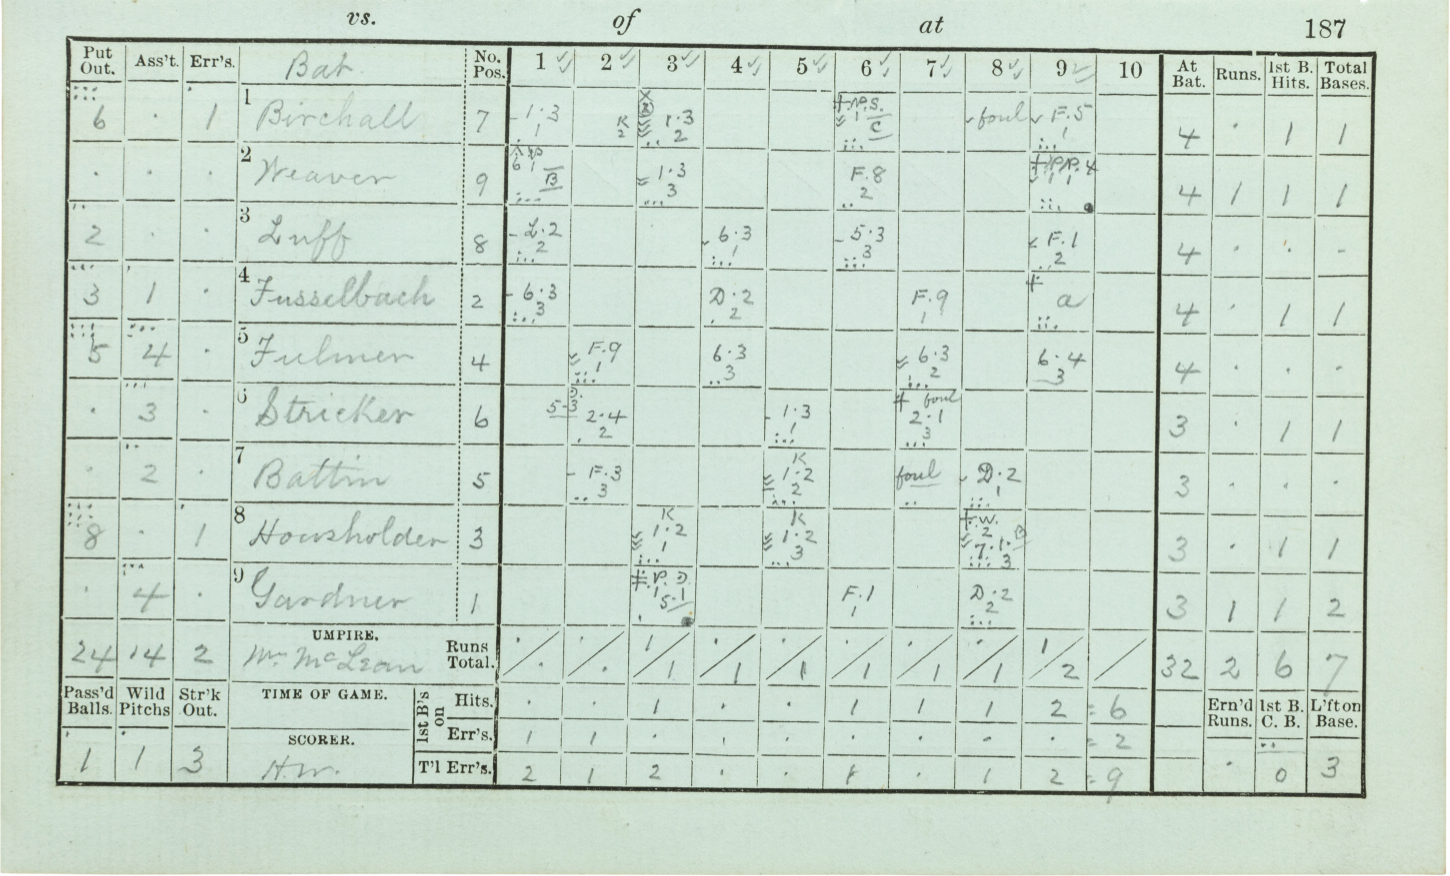 vs. of at 187
Put Out. Ass't. Err's. Bat. No. Pos. 1 2 3 4 5 6 7 8 9 10 At Bat. Runs. 1st B. Hits. Total Bases.
6 · 1 1 Birchall 7 1·3 1 K 2 1·3 2 foul F.5 1 4 · 1 1
· · · 2 Weaver 9 B 1·3 3 F.8 2 4 1 1 1
2 · · 3 Luff 8 L·2 2 6·3 1 5·3 3 F.1 2 4 · · ·
3 1 · 4 Fusselbach 2 6·3 3 D·2 2 F.9 1 a 4 · 1 1
5 4 · 5 Fulmer 4 F.9 1 6·3 3 6·3 2 6·4 3 4 · · ·
· 3 · 6 Stricker 6 5-3 2·4 2 1·3 1 foul 2·1 3 3 · 1 1
· 2 · 7 Battin 5 F·3 3 K 1·2 2 foul D·2 1 3 · · ·
8 · 1 8 Housholder 3 K 1·2 1 K 1·2 3 3 · 1 1
· 4 · 9 Gardner 1 F.1 1 D·2 2 3 1 1 2
24 14 2 UMPIRE. Wm McLean Runs Total. · · · · 1 1 · 1 · 1 · 1 · 1 · 1 1 2 32 2 6 7
Pass'd Balls. Wild Pitchs Str'k Out. TIME OF GAME. 1st B's on Hits. · · 1 · · 1 1 1 2 = 6 Ern'd Runs. 1st B. C. B. L'ft on Base.
SCORER. Err's. 1 1 · · · · · · · = 2
1 1 3 H.W. T'l Err's. 2 1 2 · · 1 · 1 2 = 9 · 0 3